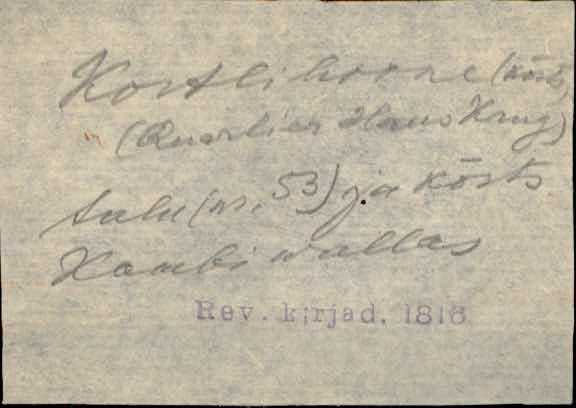 Kortlihoone (kõrts,
(Quartier Haus Krug)
talu (nr. 53) ja kõrts
Kambi wallas
Rev. kirjad. 1816